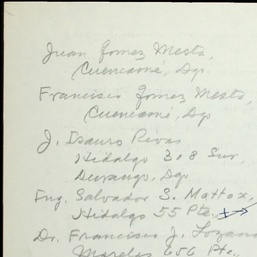 Juan Gomez Mesta,
Cuencamé, Dgo.
Francisco Gomez Mesta,
Cuencamé, Dgo
J. Isauro Rivas
Hidalgo 308 Sur,
Durango, Dgo.
Ing. Salvador S. Mattox,
Hidalgo 55 Pte.,
Dr. Francisco J. Lozano
Morelos 656 Pte.,